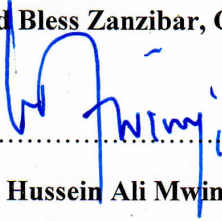 d Bless Zanzibar, 
Hussein Ali Mwin